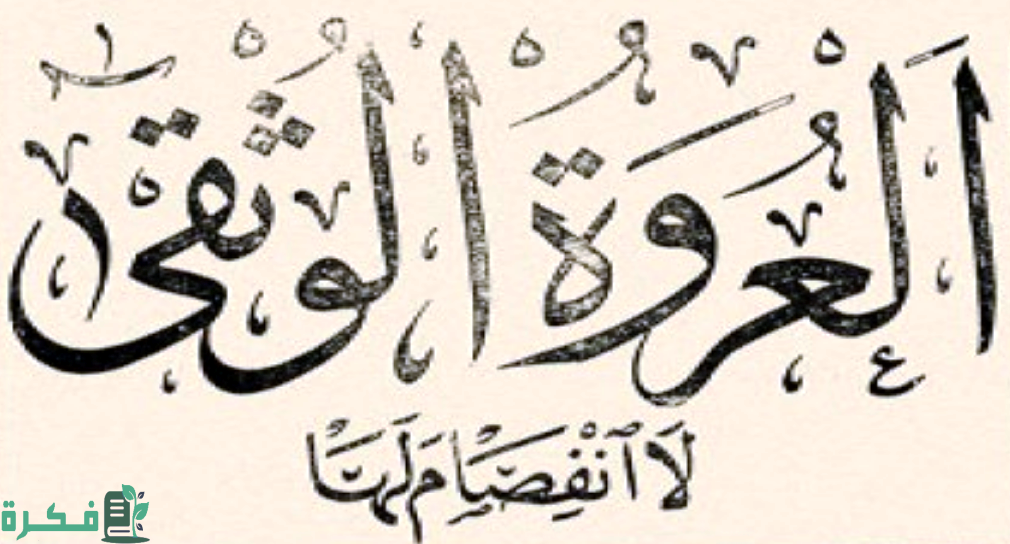 اَلْعُرْوَةُ الْوُثْقٰى
لَا ٱنْفِصَامَ لَهَا
فكرة